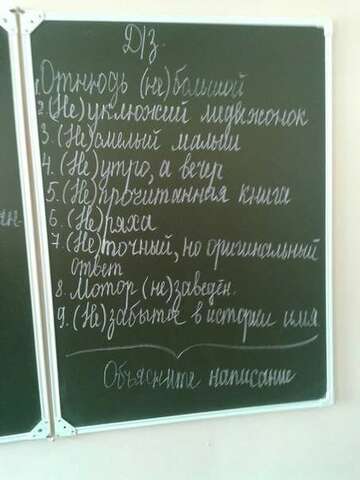 Д/з.
1. Отнюдь (не)большой
2. (Не)уклюжий медвежонок
3. (Не)смелый малыш
4. (Не)утро, а вечер
5. (Не)прочитанная книга
6. (Не)ряха
7. (Не)точный, но оригинальный
ответ
8. Мотор (не)заведён.
9. (Не)забытое в истории имя
Объясните написание